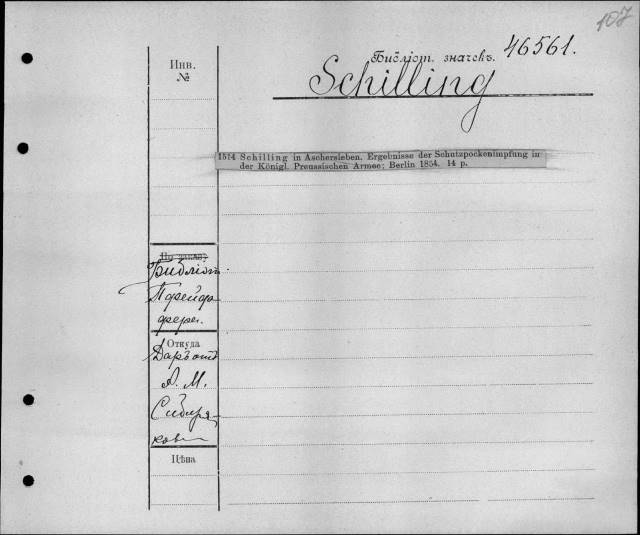 107
Библіот. значекъ. 46561.
Инв.
№
Schilling
1514 Schilling in Aschersleben. Ergebnisse der Schutzpockenimpfung in
der Königl. Preussischen Armee; Berlin 1854. 14 p.
По заказу
Библіот.
Пфейф-
фера.
Откуда
Даръ отъ
А. М.
Сибиря-
кова
Цѣна